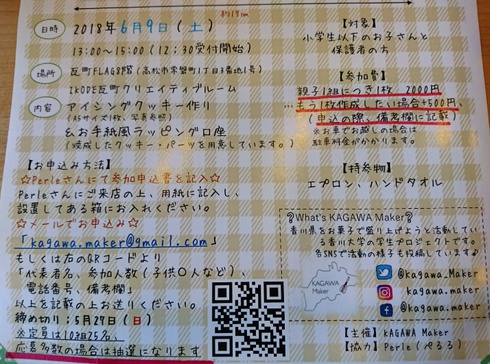 約19cm
日時
2018年6月9日(土)
13:00~15:00(12:30受付開始)
場所
瓦町FLAG8階(高松市常磐町1丁目3番地1号)
IKODE瓦町クリエイティブルーム
内容
アイシングクッキー作り
(A5サイズ1枚、写真参照)
&お手紙風ラッピング講座
(焼成したクッキー・パーツを用意しています。)
【お申込み方法】
☆Perleさんにて参加申込書を記入☆
Perleさんにご来店の上、用紙に記入し、
設置してある箱にお入れください。
☆メールでお申込み☆
「kagawa.maker@gmail.com」
もしくは右のQRコードより
「代表者名、参加人数(子供〇人など)、
電話番号、備考欄」
以上を記載の上お送りください。
締め切り:5月27日(日)
※定員は10組25名、
応募多数の場合は抽選になります
【対象】
小学生以下のお子さんと
保護者の方
【参加費】
親子1組につき1枚 2000円
…もう1枚作成したい場合+500円、
(申込の際、備考欄に記載)
※お車でお越しの場合は
駐車料金がかかります。
【持参物】
エプロン、ハンドタオル
What's KAGAWA Maker?
香川県をお菓子で盛り上げようと活動してい
る香川大学の学生プロジェクトです。
各SNSで活動の様子も投稿しています♪
KAGAWA
Maker
@kagawa.Maker
@kagawa.maker
@kagawa.maker
【主催】KAGAWA Maker
【協力】Perle(ぺるる)